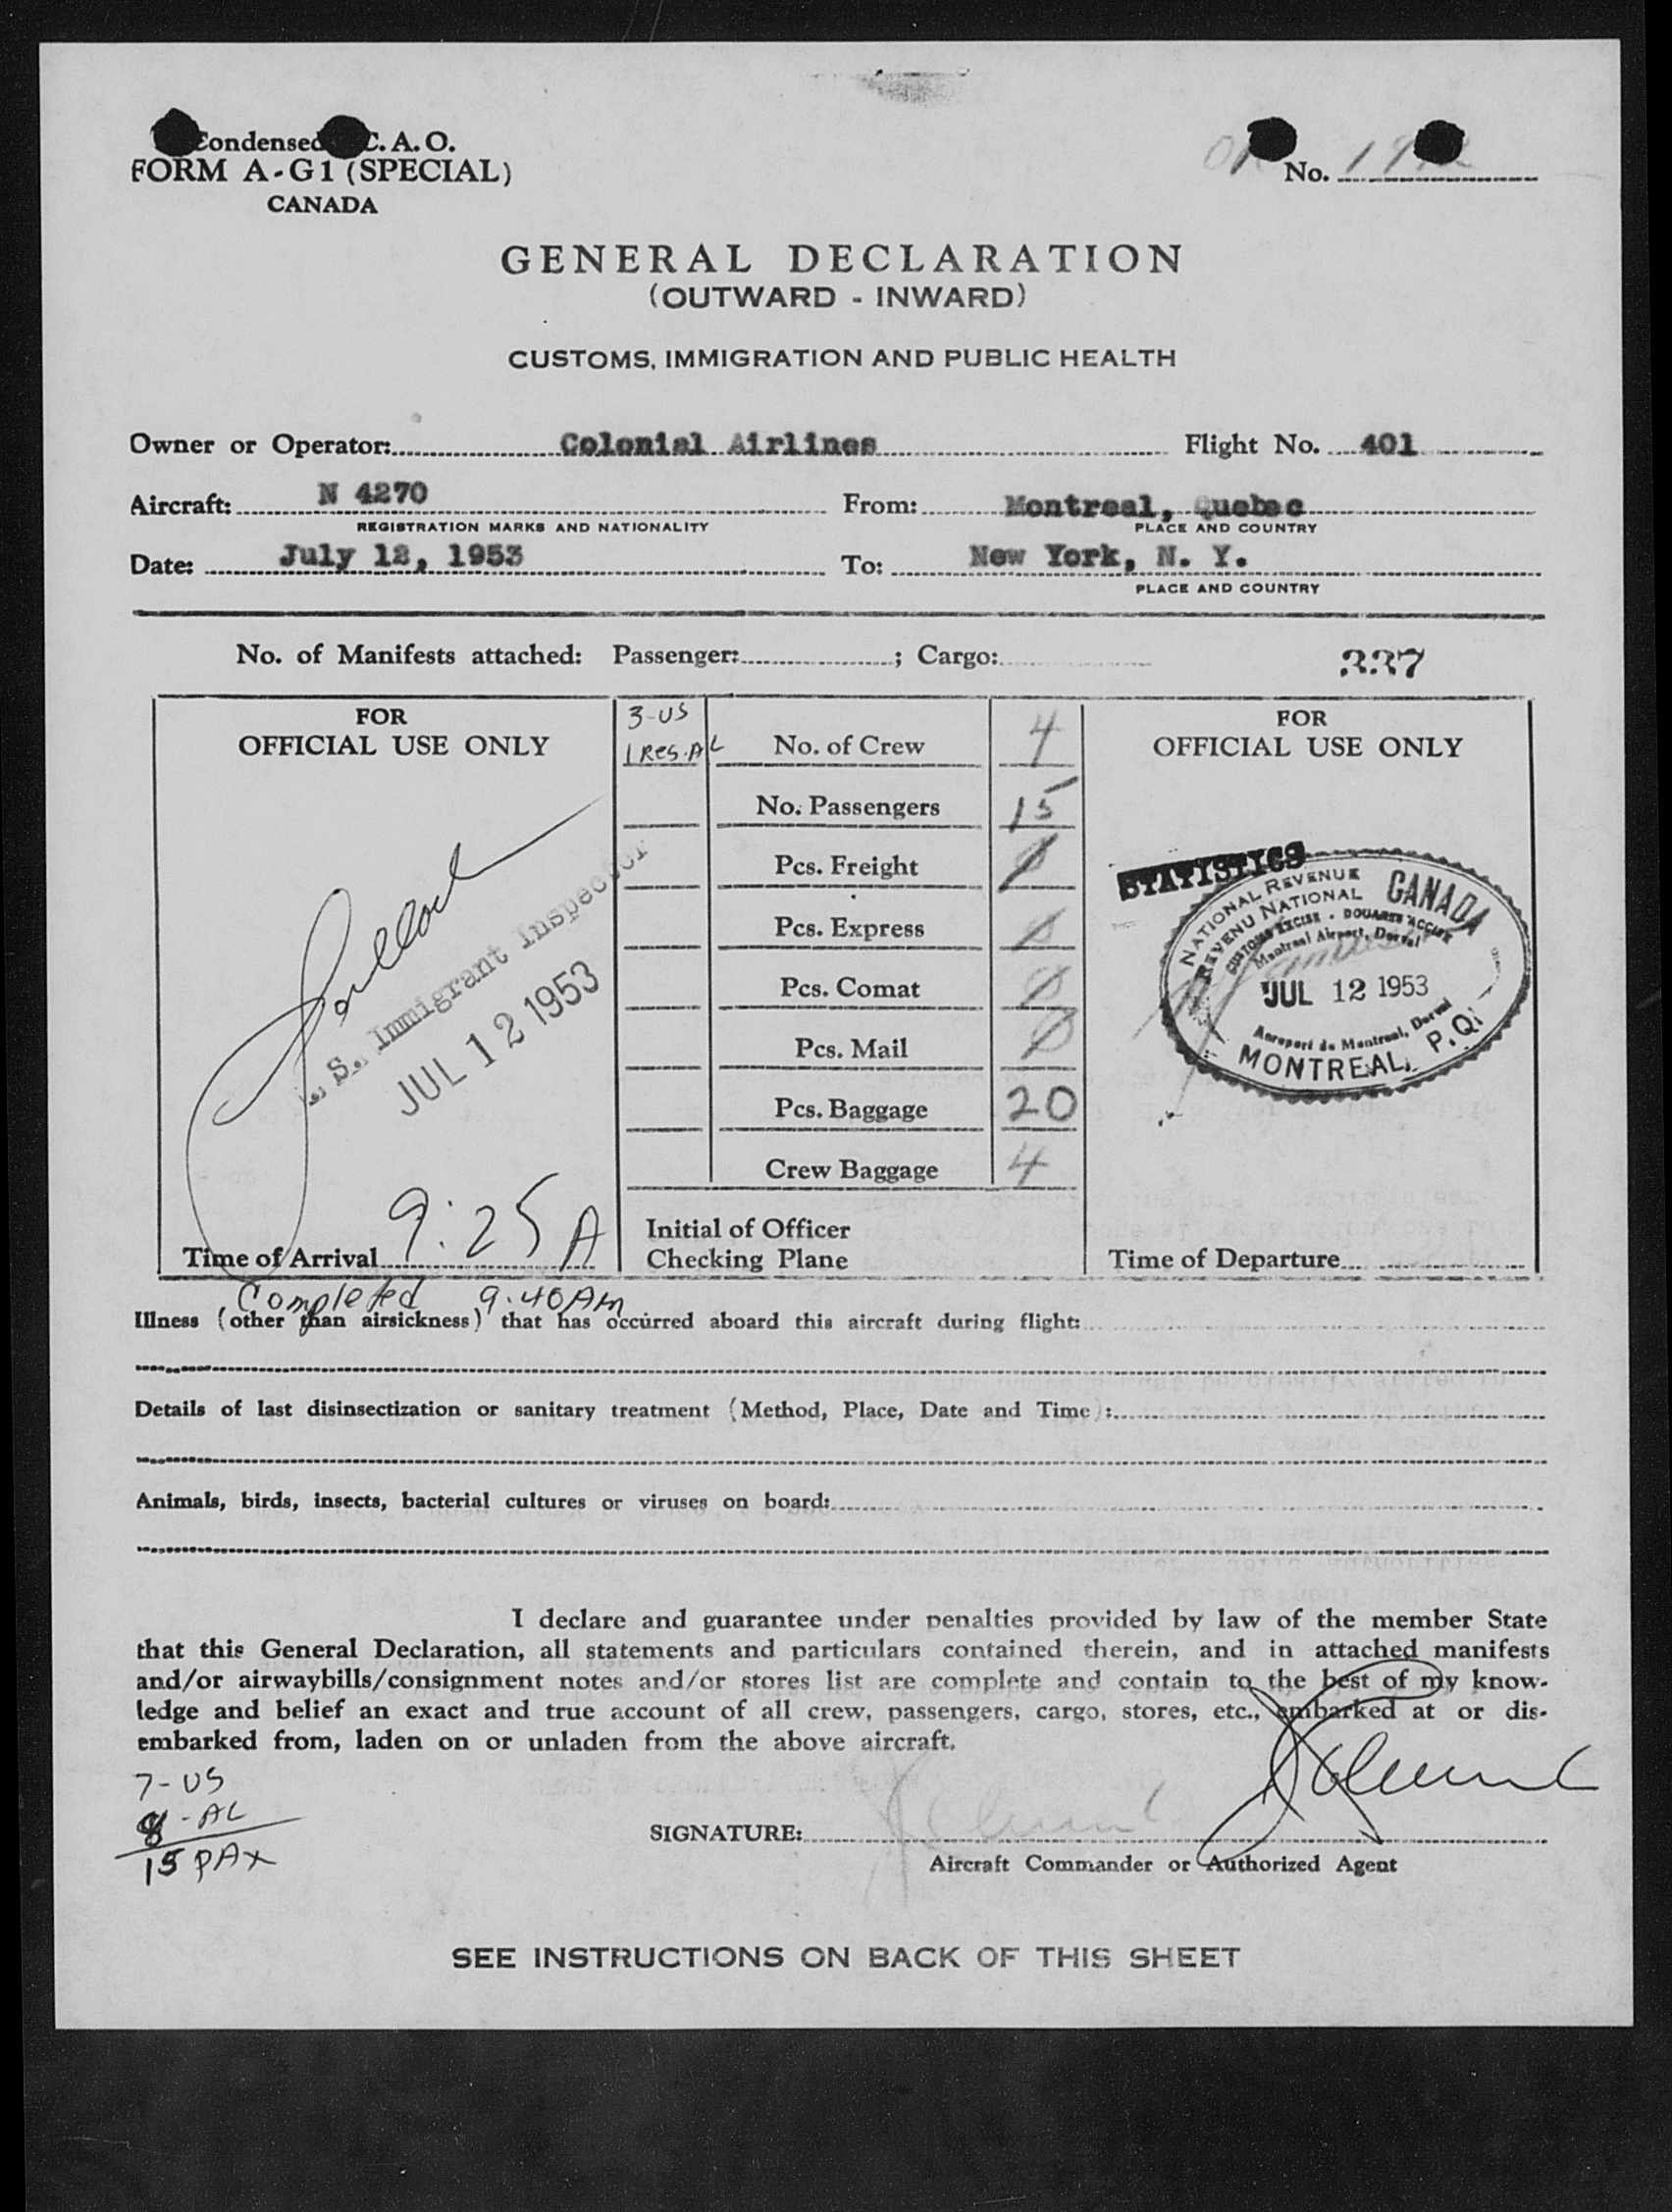 Condensed C. A. O.
FORM A-G1 (SPECIAL)
CANADA
No.
GENERAL DECLARATION
(OUTWARD - INWARD)
CUSTOMS, IMMIGRATION AND PUBLIC HEALTH
Owner or Operator: Colonial Airlines Flight No. 401
Aircraft: N 4270 From: Montreal, Quebec
REGISTRATION MARKS AND NATIONALITY PLACE AND COUNTRY
Date: July 12, 1953 To: New York, N. Y.
PLACE AND COUNTRY
No. of Manifests attached: Passenger: ; Cargo: 337
FOR
OFFICIAL USE ONLY
S. Immigrant Inspector
JUL 12 1953
Time of Arrival 9:25 A
Completed 9:40 AM
3-US
1 Res. AL No. of Crew 4
No. Passengers 15
Pcs. Freight 0
Pcs. Express 0
Pcs. Comat 0
Pcs. Mail 0
Pcs. Baggage 20
Crew Baggage 4
Initial of Officer
Checking Plane
FOR
OFFICIAL USE ONLY
STATISTICS
NATIONAL REVENUE CANADA
REVENU NATIONAL
CUSTOMS EXCISE - DOUANES ACCISE
Montreal Airport, Dorval
JUL 12 1953
Aeroport de Montreal, Dorval
MONTREAL, P.Q.
Time of Departure
Illness (other than airsickness) that has occurred aboard this aircraft during flight:
Details of last disinsectization or sanitary treatment (Method, Place, Date and Time):
Animals, birds, insects, bacterial cultures or viruses on board:
I declare and guarantee under penalties provided by law of the member State
that this General Declaration, all statements and particulars contained therein, and in attached manifests
and/or airwaybills/consignment notes and/or stores list are complete and contain to the best of my know-
ledge and belief an exact and true account of all crew, passengers, cargo, stores, etc., embarked at or dis-
embarked from, laden on or unladen from the above aircraft.
7-US
8-AL
15 PAX
SIGNATURE:
Aircraft Commander or Authorized Agent
SEE INSTRUCTIONS ON BACK OF THIS SHEET